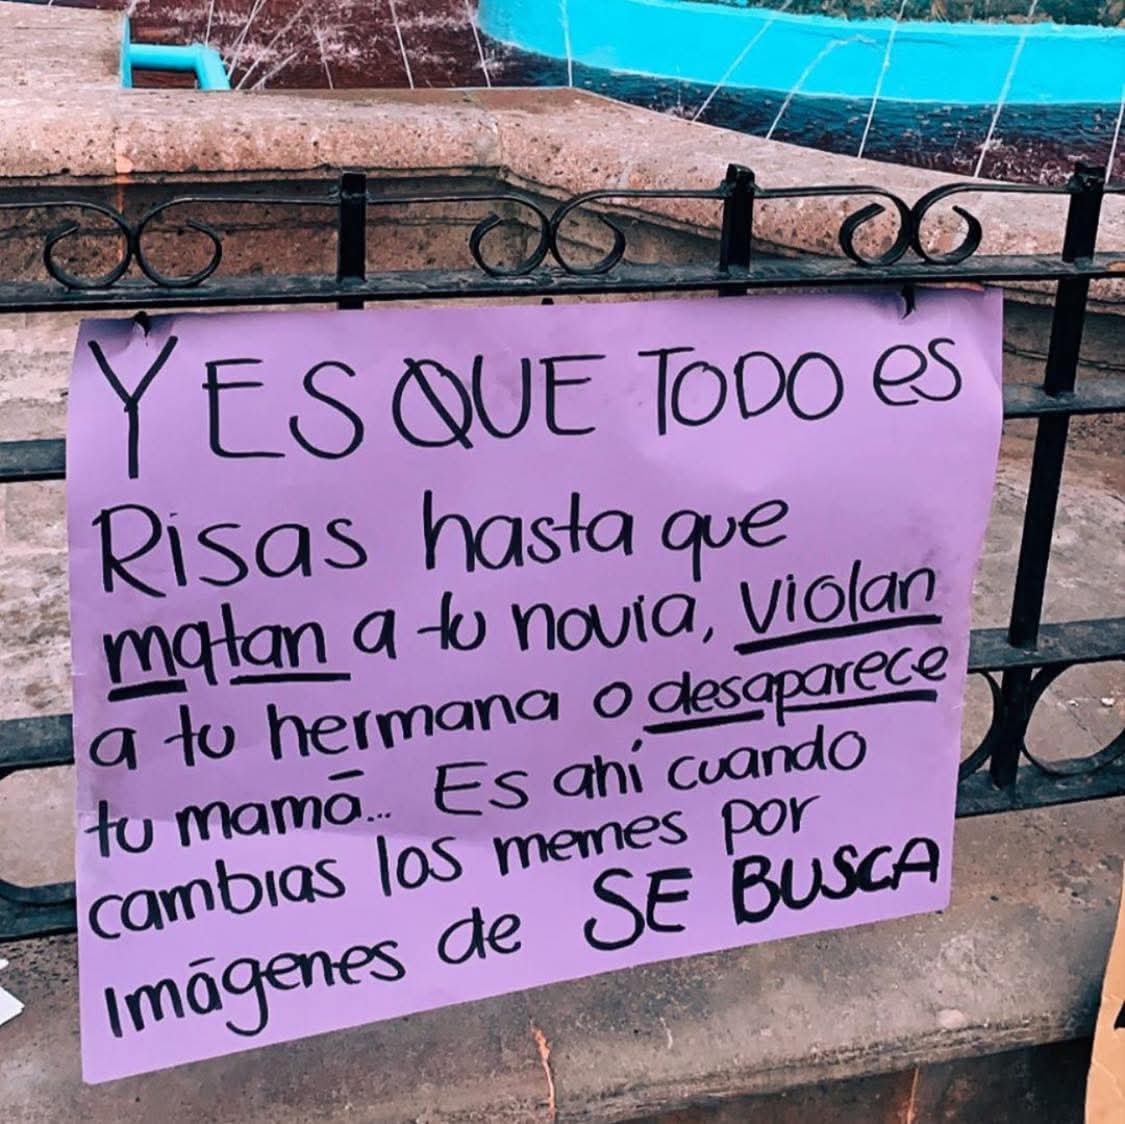 Y ES QUE TODO es
Risas hasta que
matan a tu novia, violan
a tu hermana o desaparece
tu mamá... Es ahí cuando
cambias los memes por
Imágenes de SE BUSCA